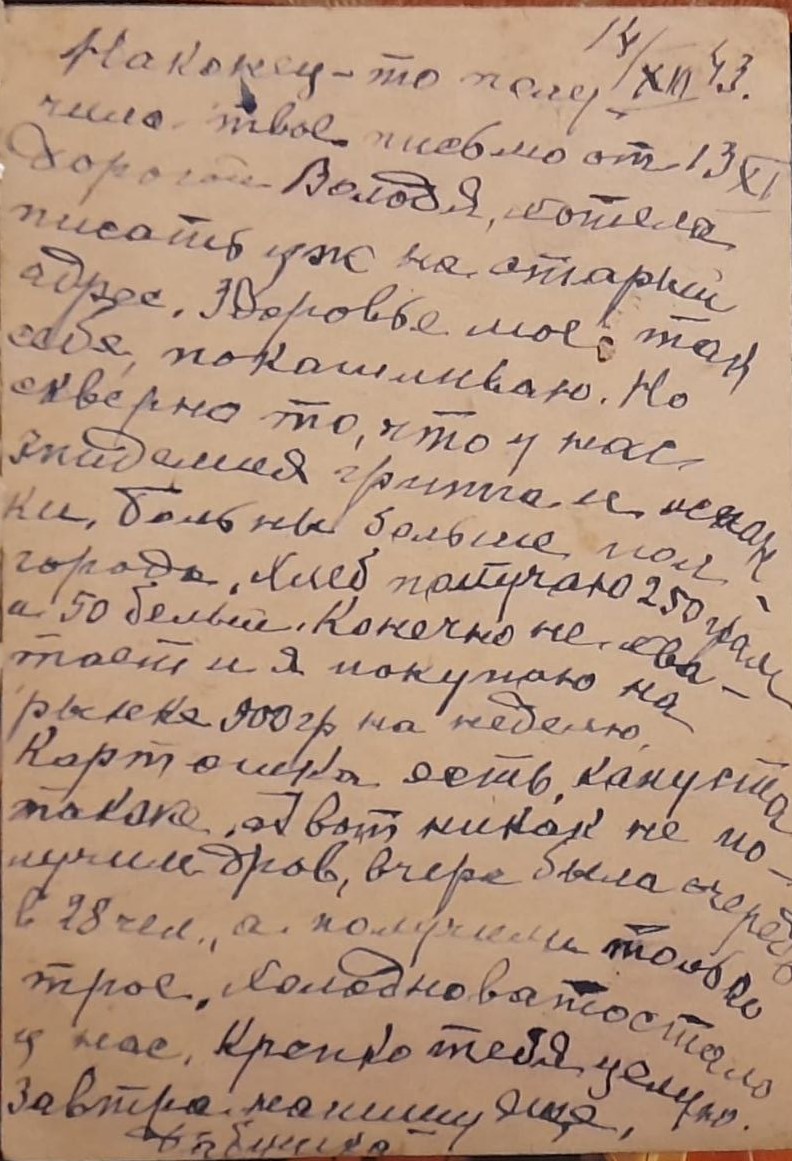 14/XII 43.
Наконец-то полу
чила твое письмо от 13 XI
Дорогой Володя, хотела
писать уж на старый
адрес. Здоровье мое так
себе, покашливаю. Но
скверно то, что у нас
эпидемия гриппа и
ки, больны больше пол-
города. Хлеб получаю 250 грам
и 50 белый. Конечно не хва-
тает и я покупаю на
рынке 900 гр на неделю.
Картошка есть, капуста
также. А вот никак не по-
лучим дров, вчера была очередь
в 28 чел., а получили только
трое. Холодновато стало
у нас. Крепко тебя целую.
Завтра напишу еще,
Бабушка